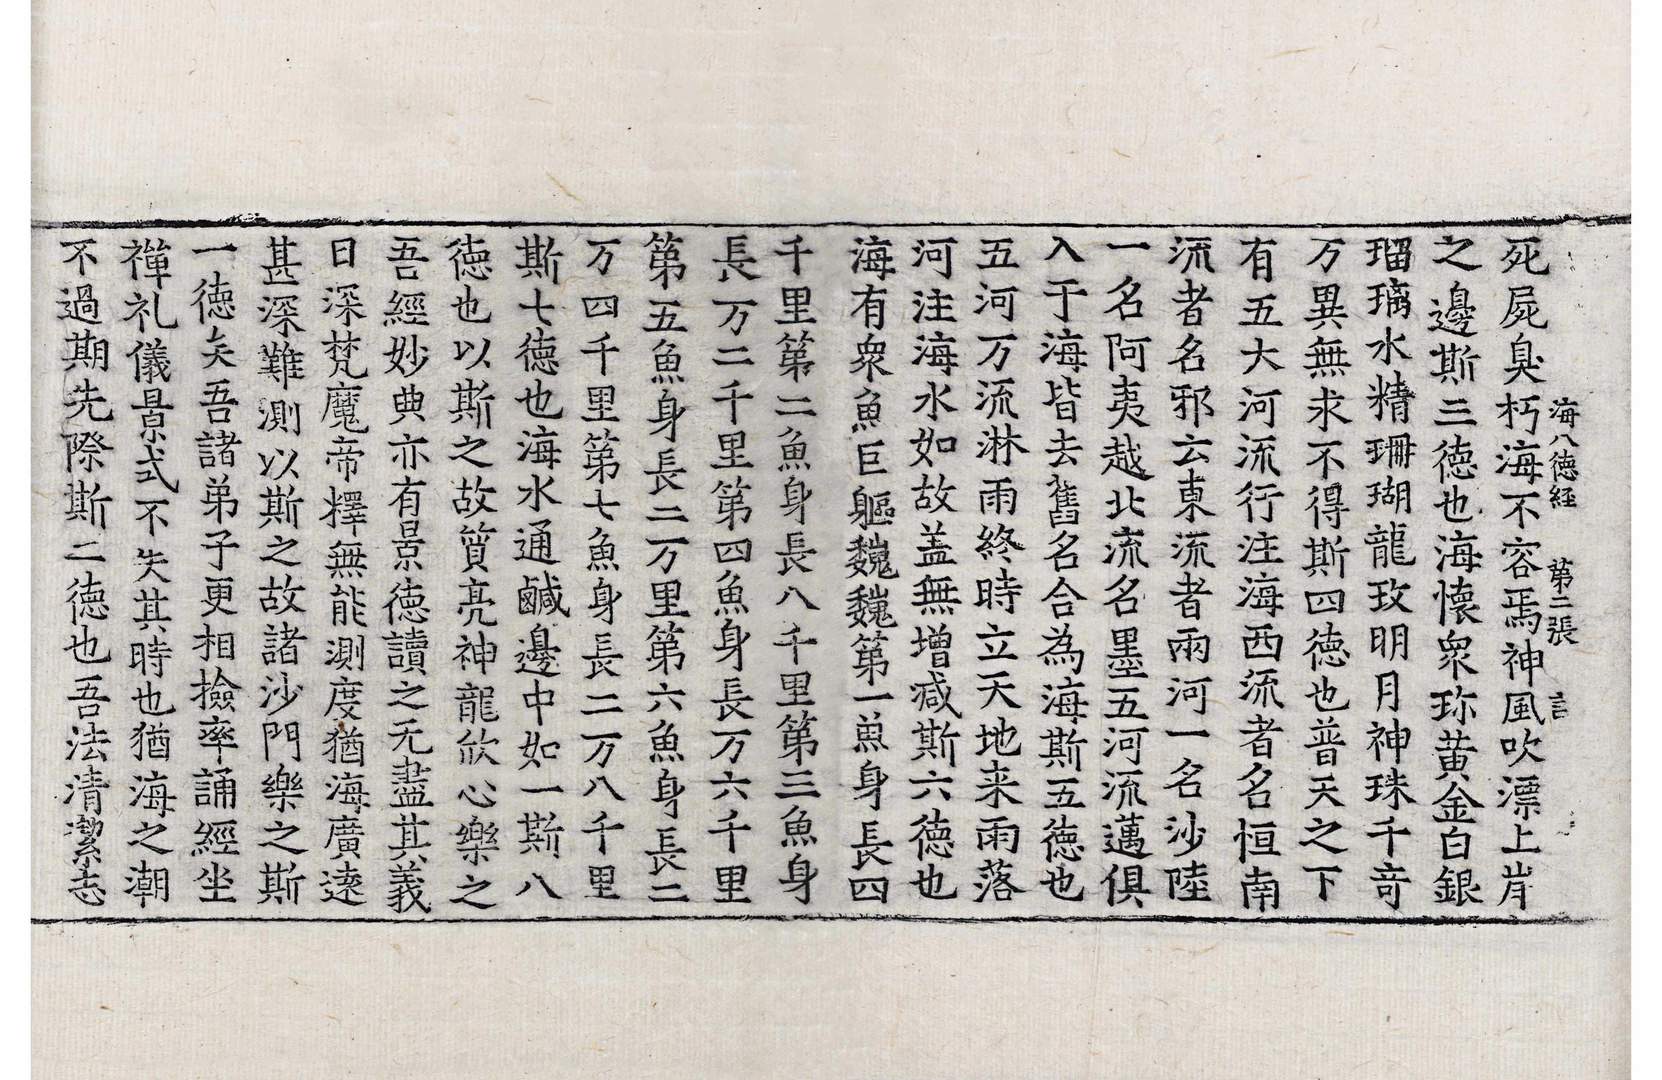 海八德経　第二張　言
死屍臭朽海不容焉神風吹漂上岸
之邊斯三德也海懷衆珎黃金白銀
瑠璃水精珊瑚龍玫明月神珠千竒
万異無求不得斯四德也普天之下
有五大河流行注海西流者名恒南
流者名邪云東流者兩河一名沙陸
一名阿夷越北流名墨五河流邁俱
入于海皆去舊名合為海斯五德也
五河万流淋雨終時立天地来雨落
河注海水如故盖無增减斯六德也
海有衆魚巨軀巍巍第一魚身長四
千里第二魚身長八千里第三魚身
長万二千里第四魚身長万六千里
第五魚身長二万里第六魚身長二
万四千里第七魚身長二万八千里
斯七德也海水通鹹邊中如一斯八
德也以斯之故質亮神龍欣心樂之
吾經妙典亦有景德讀之无盡其義
日深梵魔帝釋無能測度猶海廣遠
甚深難測以斯之故諸沙門樂之斯
一德矣吾諸弟子更相撿率誦經坐
禪礼儀景式不失其時也猶海之潮
不過期先際斯二德也吾法清潔志